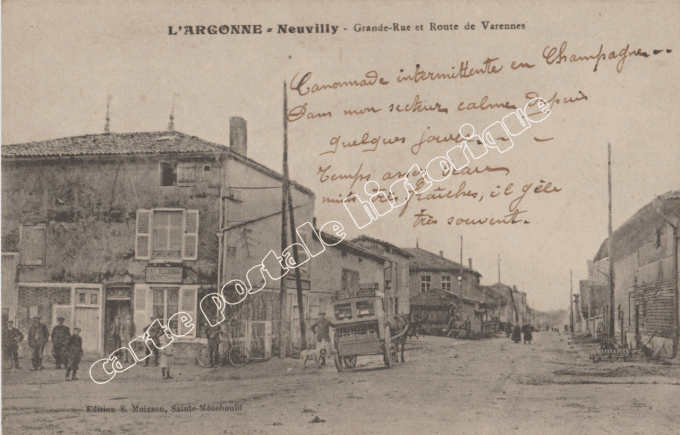 L'ARGONNE - Neuvilly - Grande-Rue et Route de Varennes
Canonnade intermittente en Champagne...
Dans mon secteur calme depuis
quelques jours. - -
Temps assez beau
nuits très fraîches, il gèle
très souvent.
carte postale historique.org
Edition E. Moisson, Sainte-Ménehould